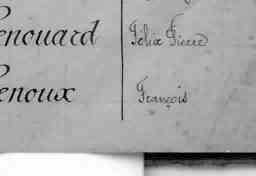 enouard Félix Pierre
enoux François